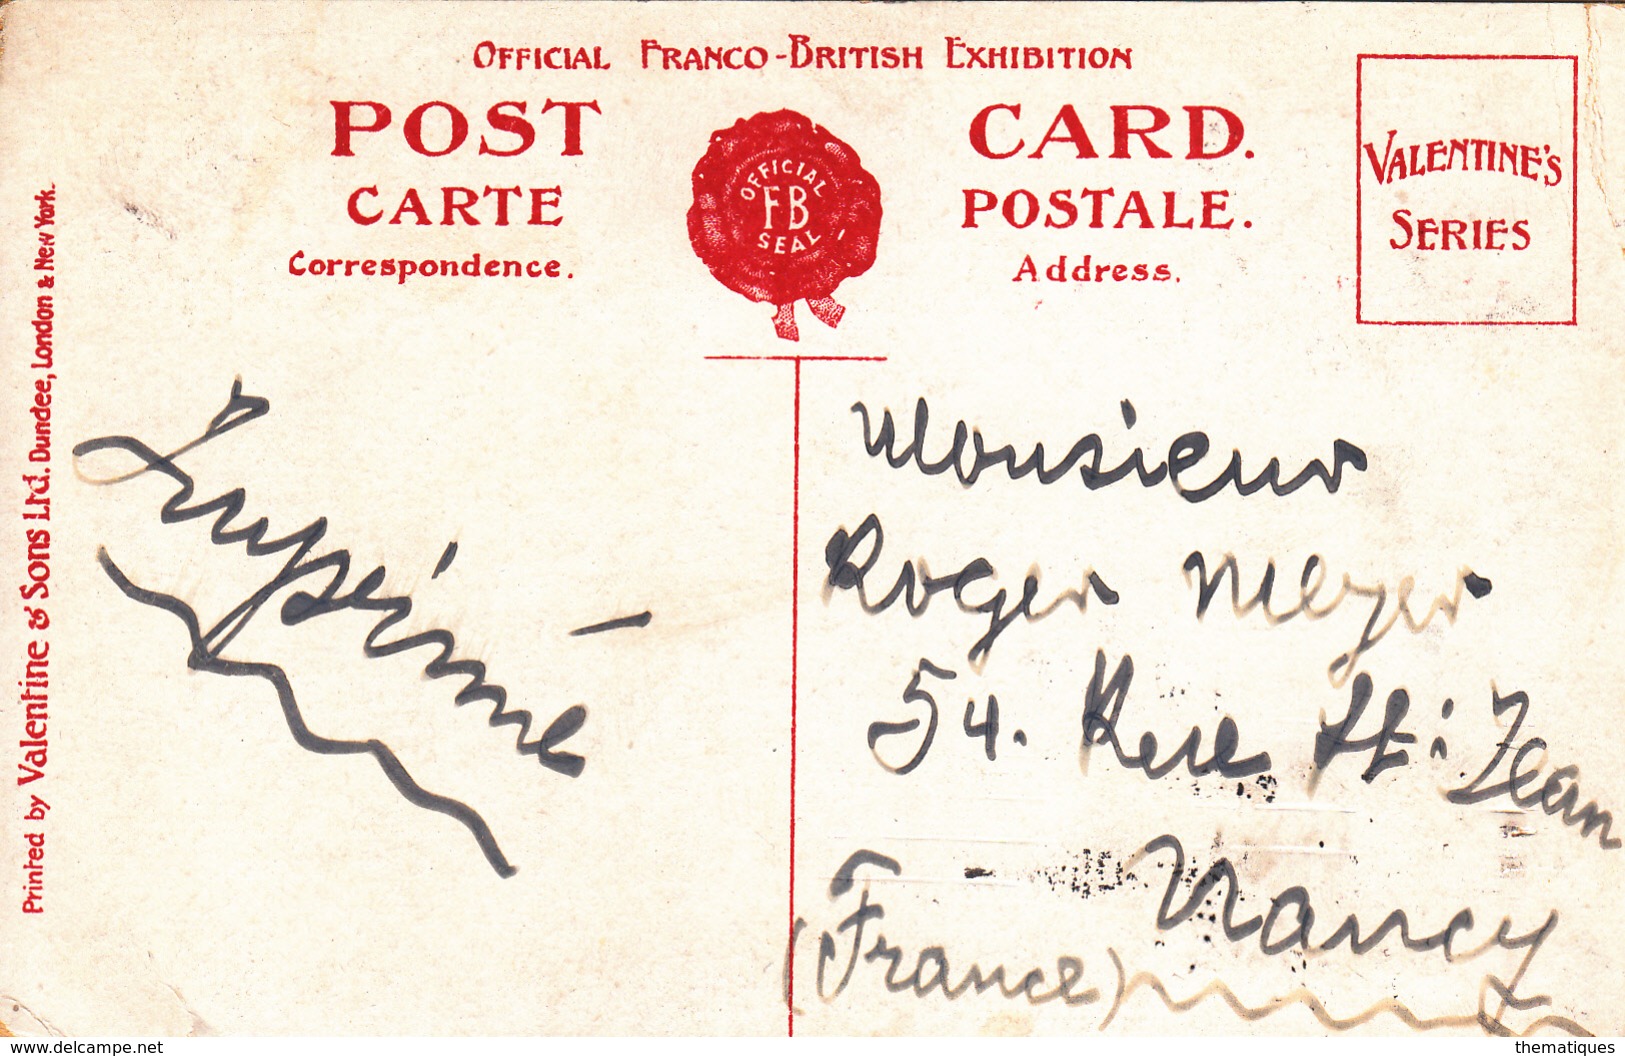 OFFICIAL FRANCO-BRITISH EXHIBITION
POST CARD.
CARTE POSTALE.
Correspondence.
Address.
OFFICIAL
FB
SEAL
VALENTINE'S
SERIES
Printed by Valentine & Sons Ltd. Dundee, London & New York.
Imprimé
Monsieur
Roger Meyer
54. Rue St: Jean
Nancy
(France)
www.delcampe.net
thematiques